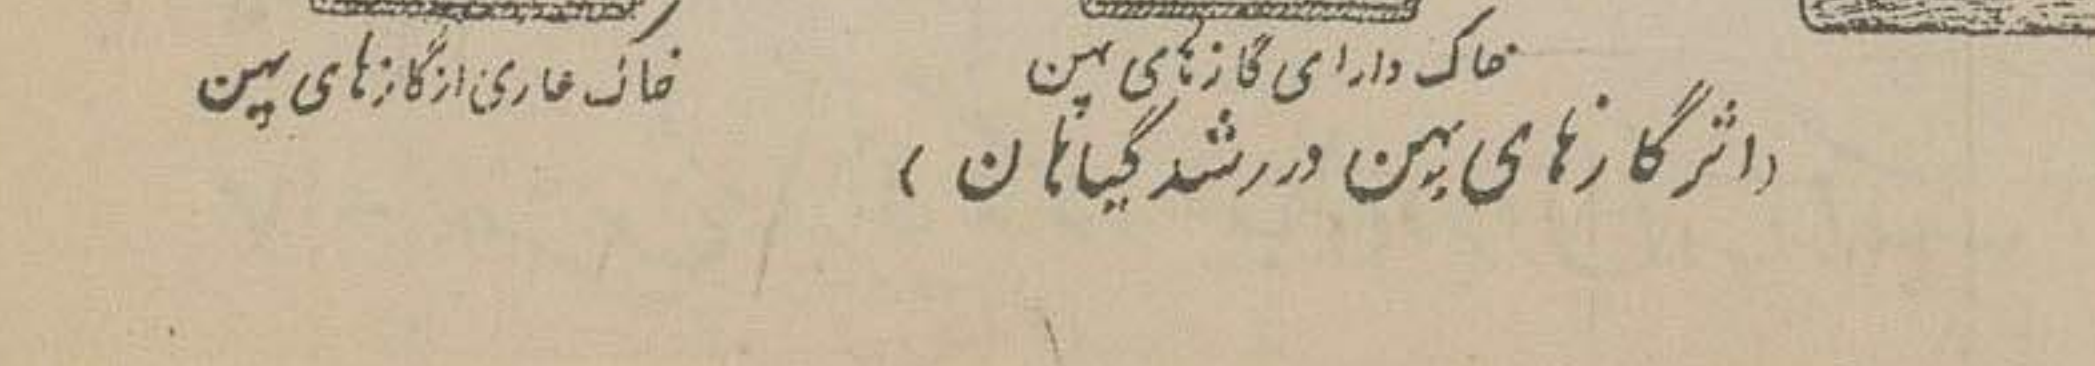 خاک دارای گازهای پهن
خاک عاری از گازهای پهن
(اثر گازهای پهن در رشد گیاهان)